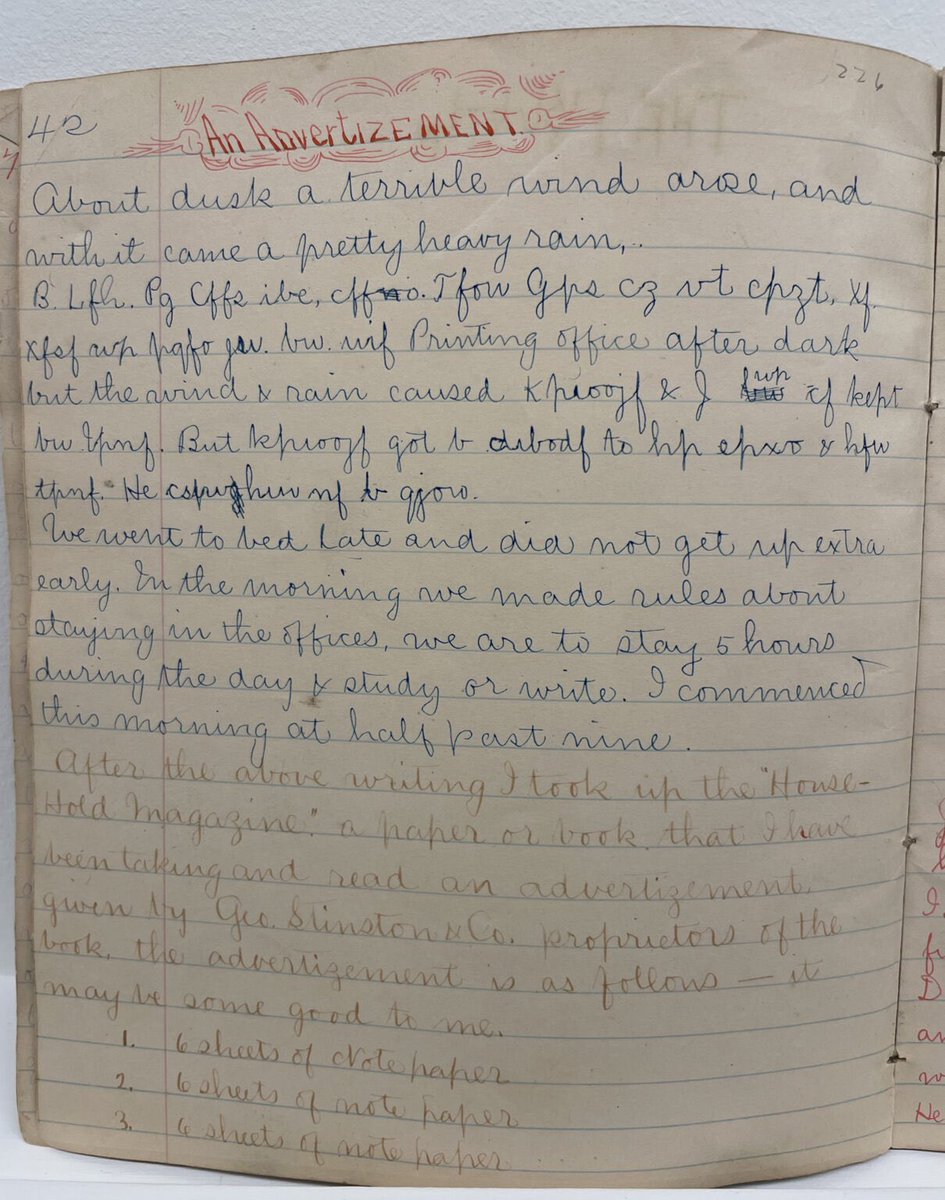 226
42
An Advertizement.
About dusk a terrible wind arose, and
with it came a pretty heavy rain,..
B. Lfh. Pg Cffs ibe, cff o. Tfow Gps cz vt cpzt, Xf.
xfsf wp pqfo bw. uif Printing office after dark
but the wind & rain caused Kpioojf & J wp if kept
bw Ipnf. But kpioojf got b dibodf to hp epxo & hfw
tpnf. He cspvhiu nf b qjow.
We went to bed Late and did not get up extra
early. In the morning we made rules about
staying in the offices, we are to stay 5 hours
during the day & study or write. I commenced
this morning at half past nine.
After the above writing I took up the "House-
Hold Magazine." a paper or book that I have
been taking and read an advertizement,
given by Geo. Stinston & Co. proprietors of the
book, the advertizement is as follons — it
may be some good to me.
1. 6 sheets of Note paper
2. 6 sheets of note paper
3. 6 sheets of note paper
I
D
an
w
He